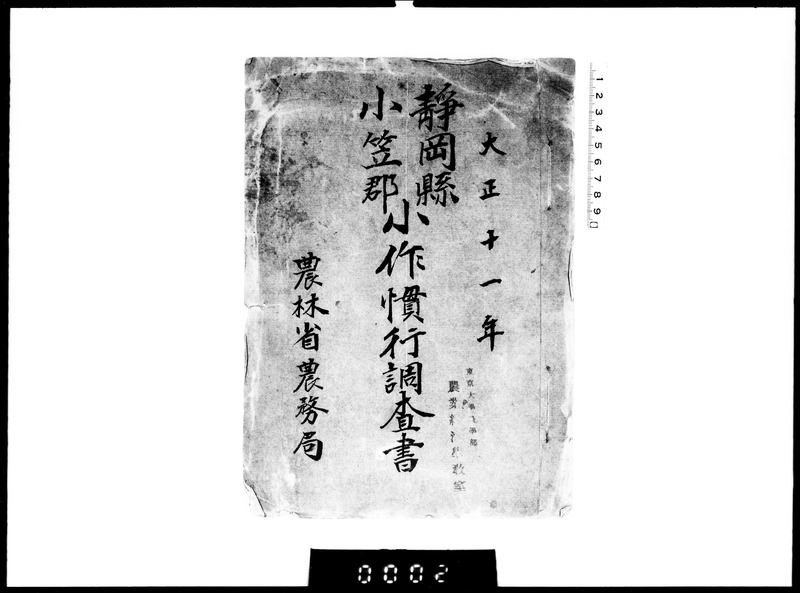 大正十一年
靜岡縣
小笠郡
小作慣行調査書
農林省農務局
東京大學
農
教室
1 2 3 4 5 6 7 8 9
0002